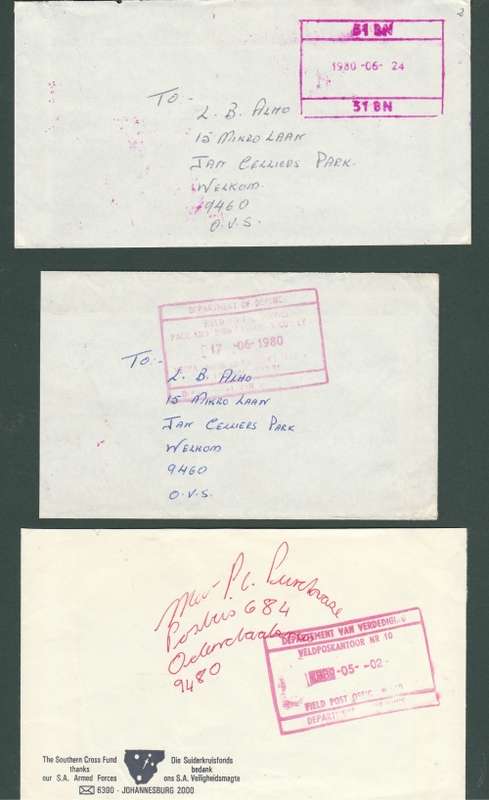 2
31 BN
1980 -06- 24
31 BN
TO -
L. B. ALHO
15 MIKRO LAAN
JAN CELLIERS PARK.
WELKOM
9460
O.V.S.
DEPARTMENT OF DEFENCE
17 -06-1980
TO:-
L. B. ALHO
15 MIKRO LAAN
JAN CELLIERS PARK
WELKOM
9460
O.V.S.
Mev P.C.
Posbus 684
9480
DEPARTMENT VAN VERDEDIGING
VELDPOSKANTOOR NR 10
-05- -02-
FIELD POST OFFICE
DEPARTMENT
The Southern Cross Fund
thanks
our S.A. Armed Forces
Die Suiderkruisfonds
bedank
ons S.A. Veiligheidsmagte
6390 - JOHANNESBURG 2000